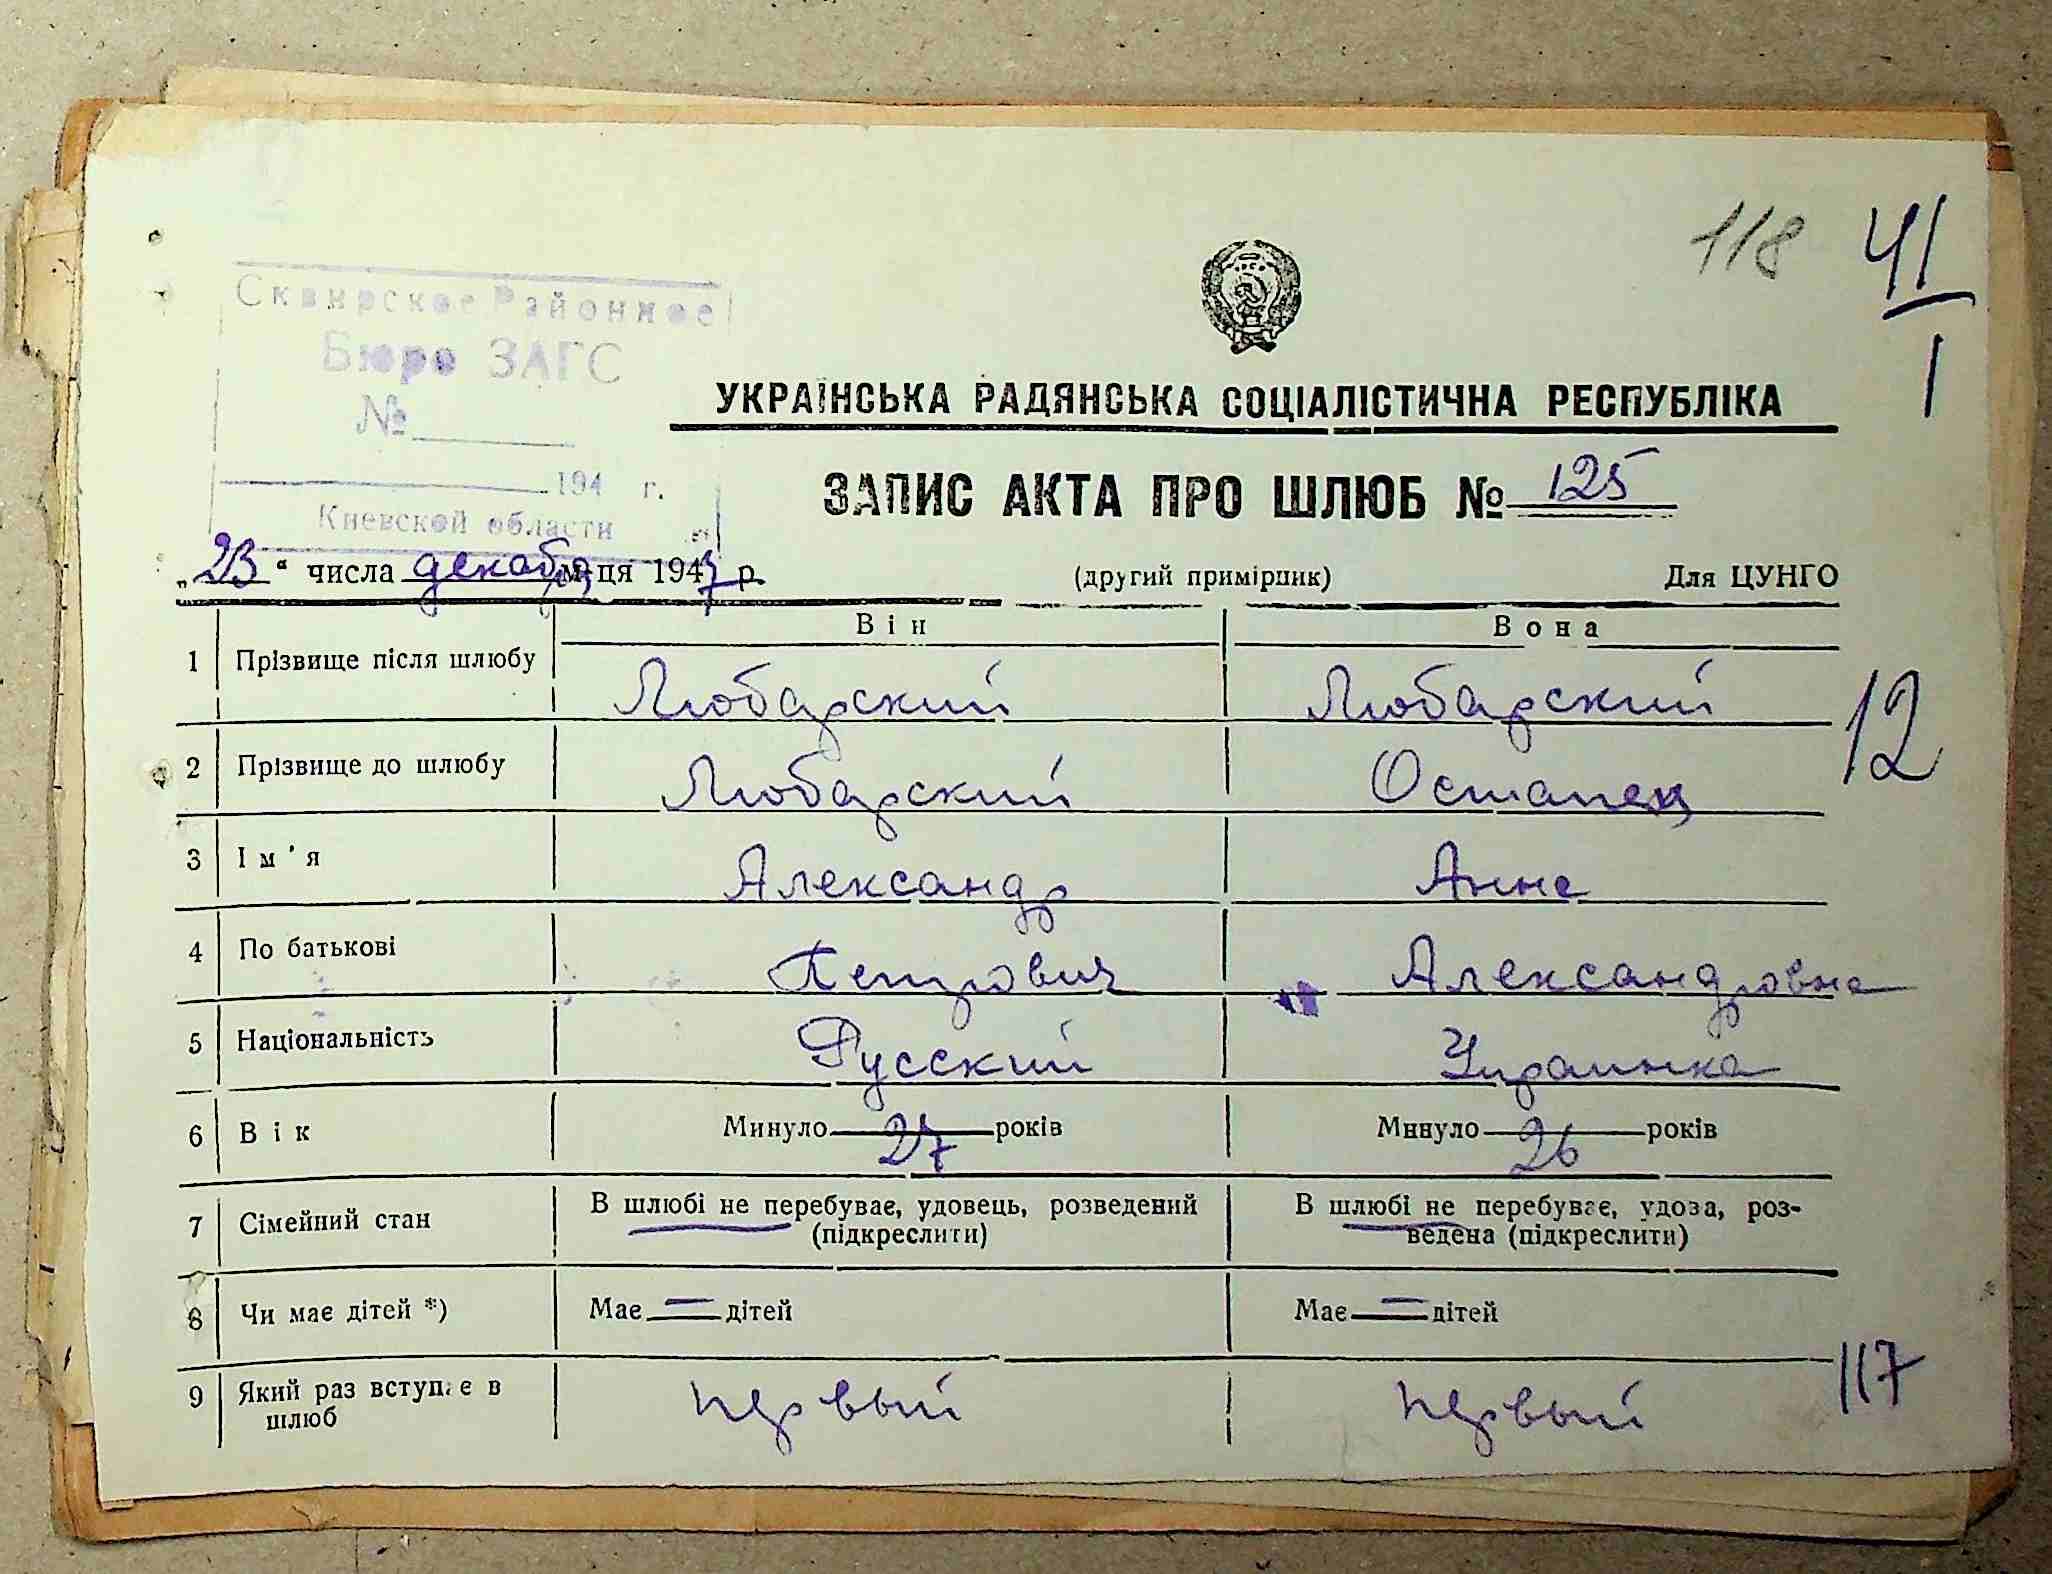 118 41
1
Сквирское Районное
Бюро ЗАГС
№
194 г.
Киевской области
УКРАЇНСЬКА РАДЯНСЬКА СОЦІАЛІСТИЧНА РЕСПУБЛІКА
ЗАПИС АКТА ПРО ШЛЮБ № 125
„23“ числа декабря м-ця 1947 р. (другий примірник) Для ЦУНГО
Він Вона
1 Прізвище після шлюбу Любарский Любарский
12
2 Прізвище до шлюбу Любарский Остапец
3 Ім'я Александр Анна
4 По батькові Петрович Александровна
5 Національність Русский Украинка
6 Вік Минуло 27 років Минуло 26 років
7 Сімейний стан В шлюбі не перебуває, удовець, розведений В шлюбі не перебуває, удова, роз-
(підкреслити) ведена (підкреслити)
8 Чи має дітей *) Має — дітей Має — дітей
117
9 Який раз вступає в первый первый
шлюб